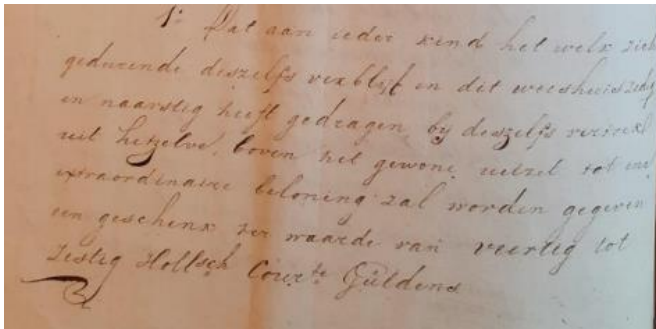 1º Dat aan ieder kind het welk zich
gedurende deszelfs verblijf in dit weeshuis zedig
en naarstig heeft gedragen, by deszelfs vertrek
uit hetzelve, boven het gewone uitzet tot eene
extraordinaire beloning zal worden gegeven
een geschenk ter waarde van veertig tot
zestig Hollsch Courte Guldens